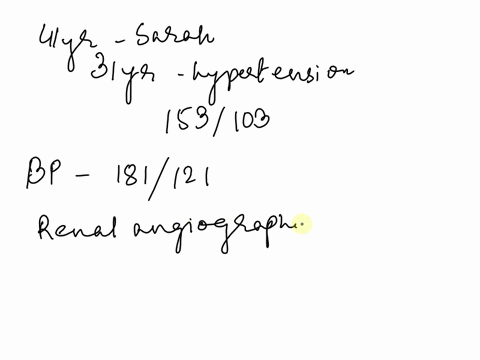 41yr - Sarah
31yr - hypertension
153/103
BP - 181/121
Renal angiograph